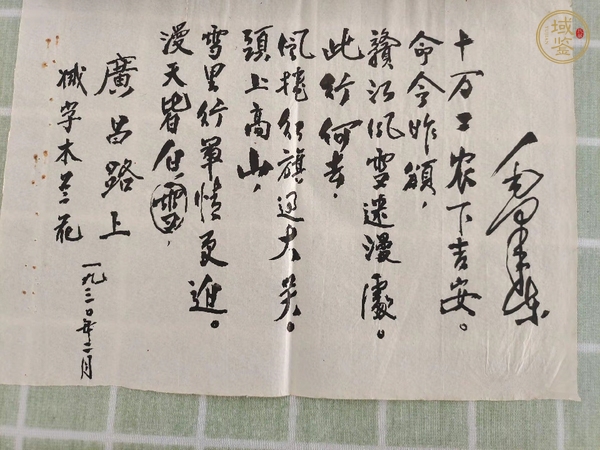 减字木兰花
廣昌路上
一九三〇年二月
漫天皆白雪,
雪里行軍情更迫。
頭上高山,
风捲红旗过大关。
此行何去,
贛江风雪迷漫處。
命令昨頒,
十万工农下吉安。
毛泽东
域鉴